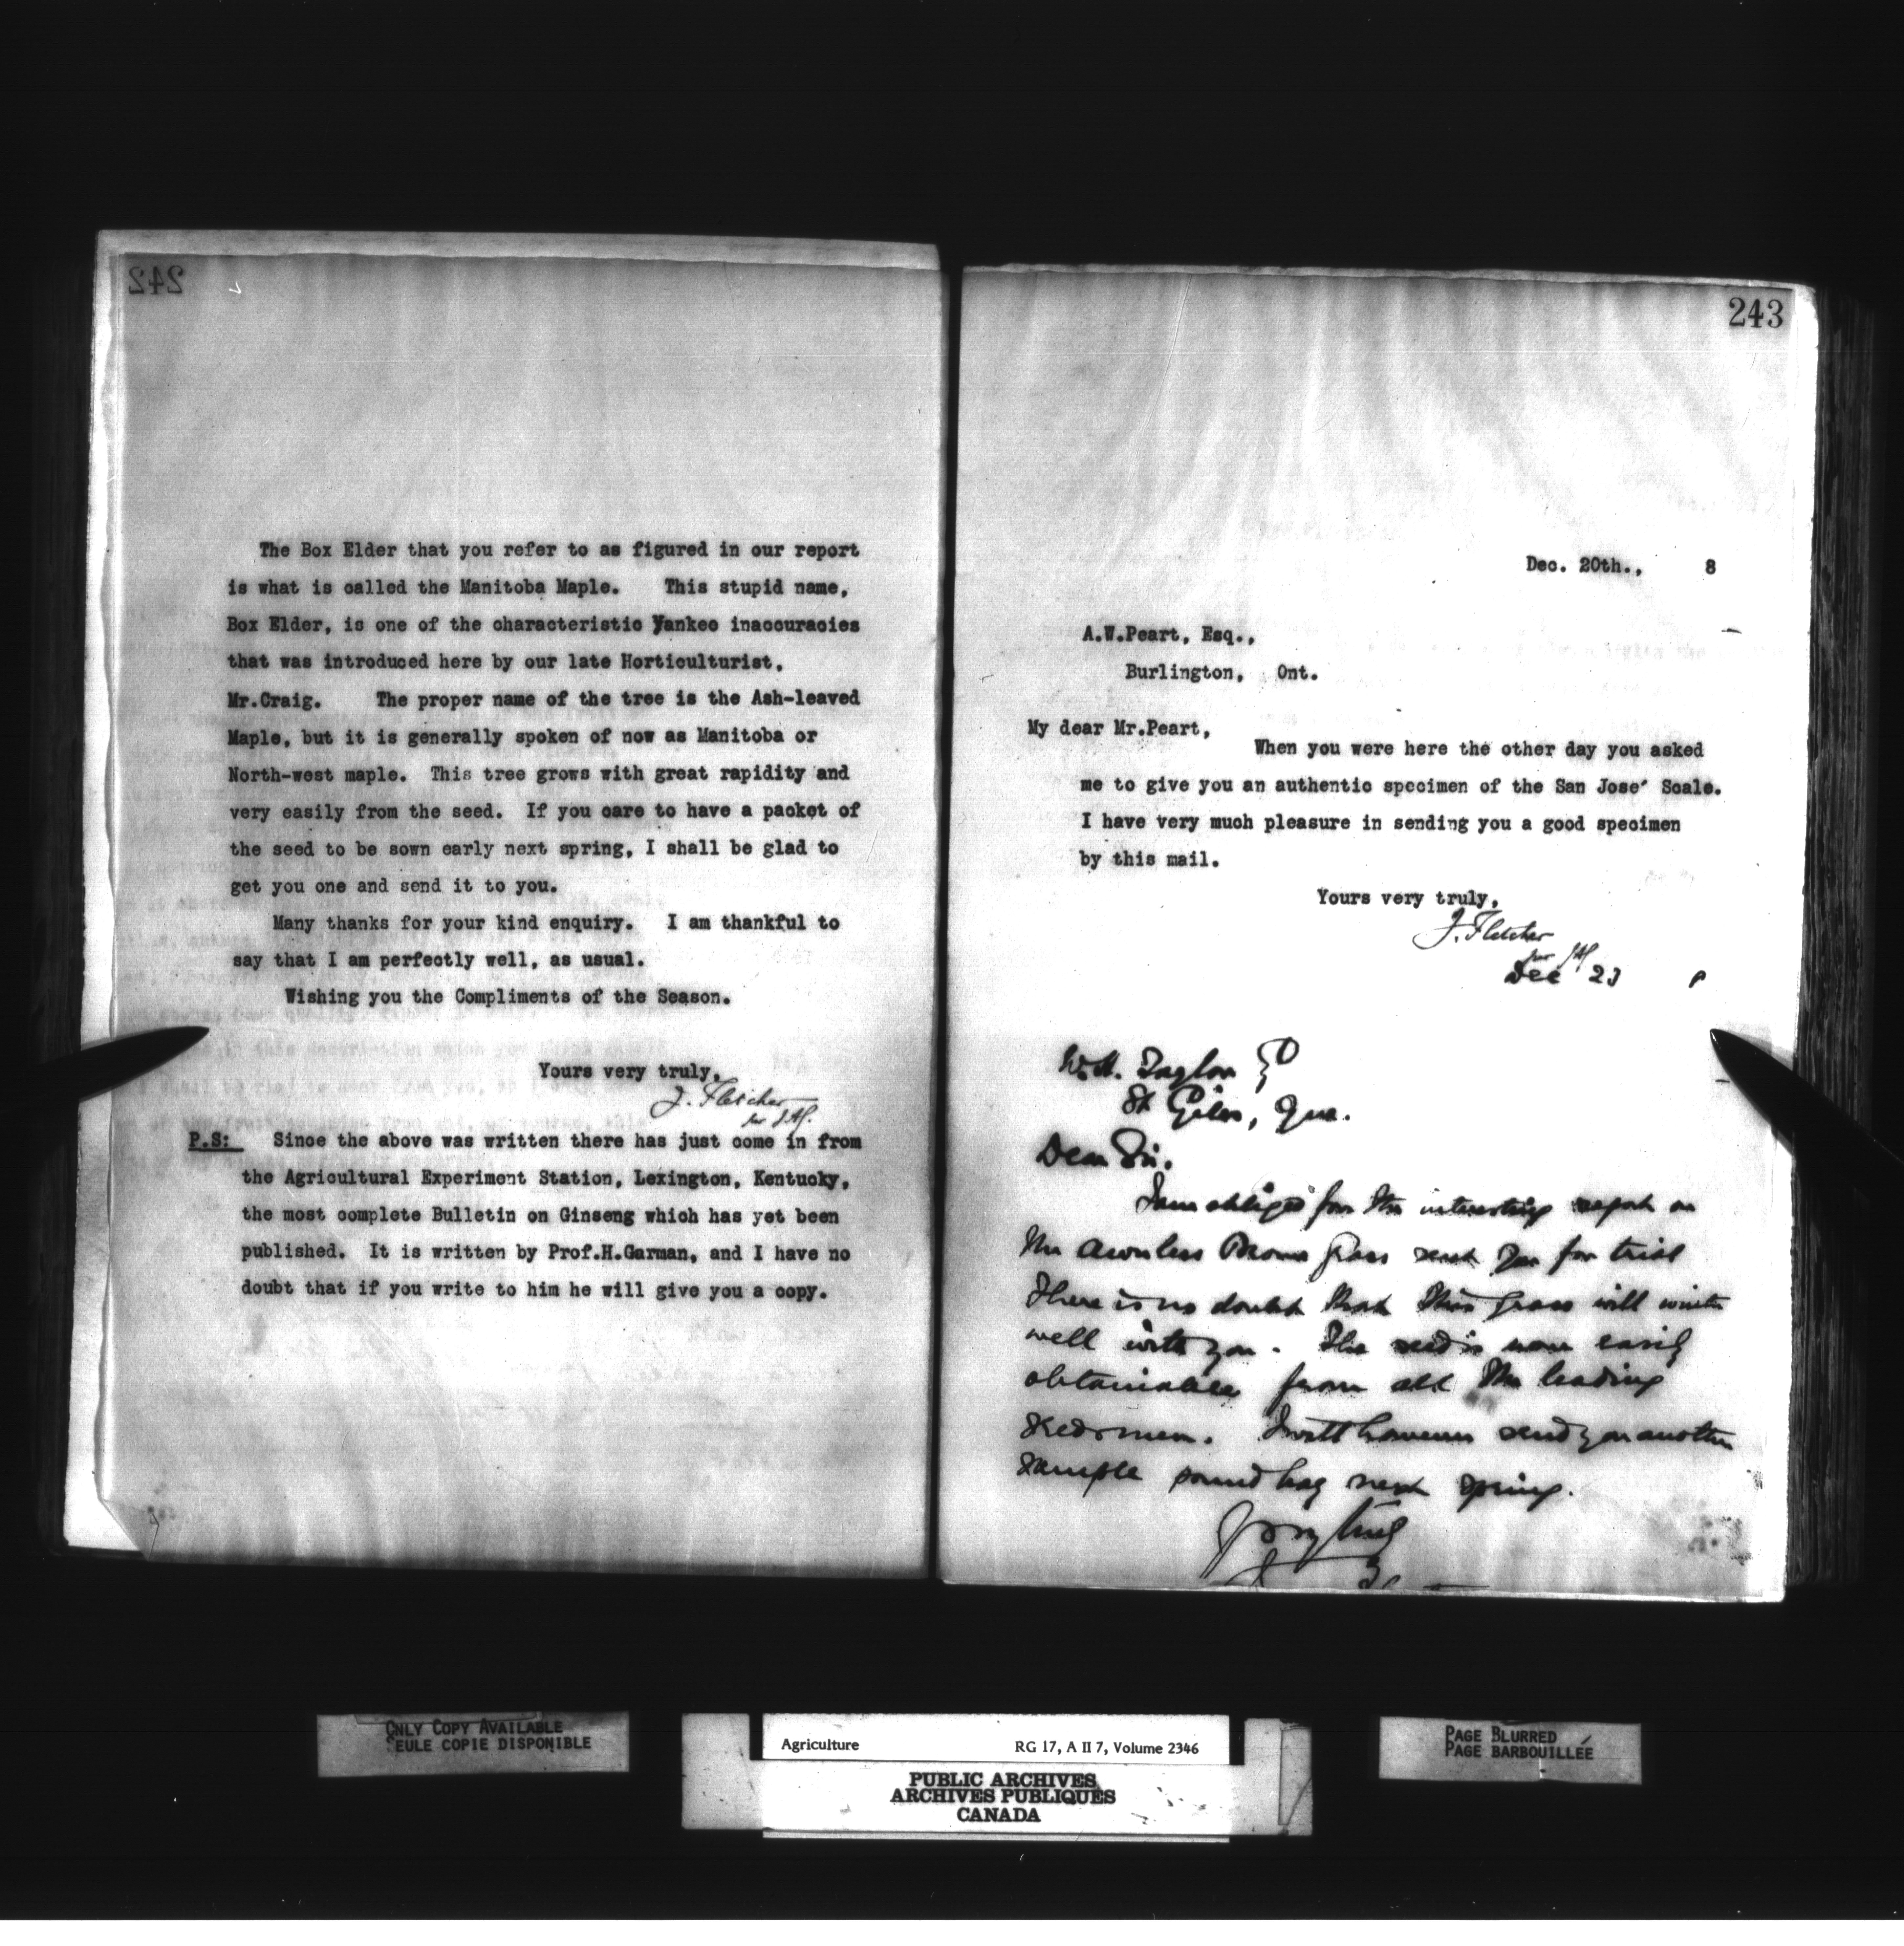 242
The Box Elder that you refer to as figured in our report
is what is called the Manitoba Maple. This stupid name,
Box Elder, is one of the characteristic Yankee inaccuracies
that was introduced here by our late Horticulturist,
Mr.Craig. The proper name of the tree is the Ash-leaved
Maple, but it is generally spoken of now as Manitoba or
North-west maple. This tree grows with great rapidity and
very easily from the seed. If you care to have a packet of
the seed to be sown early next spring, I shall be glad to
get you one and send it to you.
Many thanks for your kind enquiry. I am thankful to
say that I am perfectly well, as usual.
Wishing you the Compliments of the Season.
Yours very truly,
J. Fletcher
per
P.S: Since the above was written there has just come in from
the Agricultural Experiment Station, Lexington, Kentucky,
the most complete Bulletin on Ginseng which has yet been
published. It is written by Prof.H.Garman, and I have no
doubt that if you write to him he will give you a copy.
243
Dec. 20th., 8
A.W.Peart, Esq.,
Burlington, Ont.
My dear Mr.Peart,
When you were here the other day you asked
me to give you an authentic specimen of the San Jose' Scale.
I have very much pleasure in sending you a good specimen
by this mail.
Yours very truly,
J. Fletcher
per
Dec 23 8
W.H. Taylor
St Giles, Que.
Dear Sir.
I am obliged for the interesting report on
the Awnless Brome Grass sent you for trial
There is no doubt that this grass will winter
well with you. The seed is now easily
obtainable from all the leading
seedsmen. I will however send you another
sample pound bag next spring.
Yours very truly
ONLY COPY AVAILABLE
SEULE COPIE DISPONIBLE
Agriculture RG 17, A II 7, Volume 2346
PUBLIC ARCHIVES
ARCHIVES PUBLIQUES
CANADA
PAGE BLURRED
PAGE BARBOUILLÉE